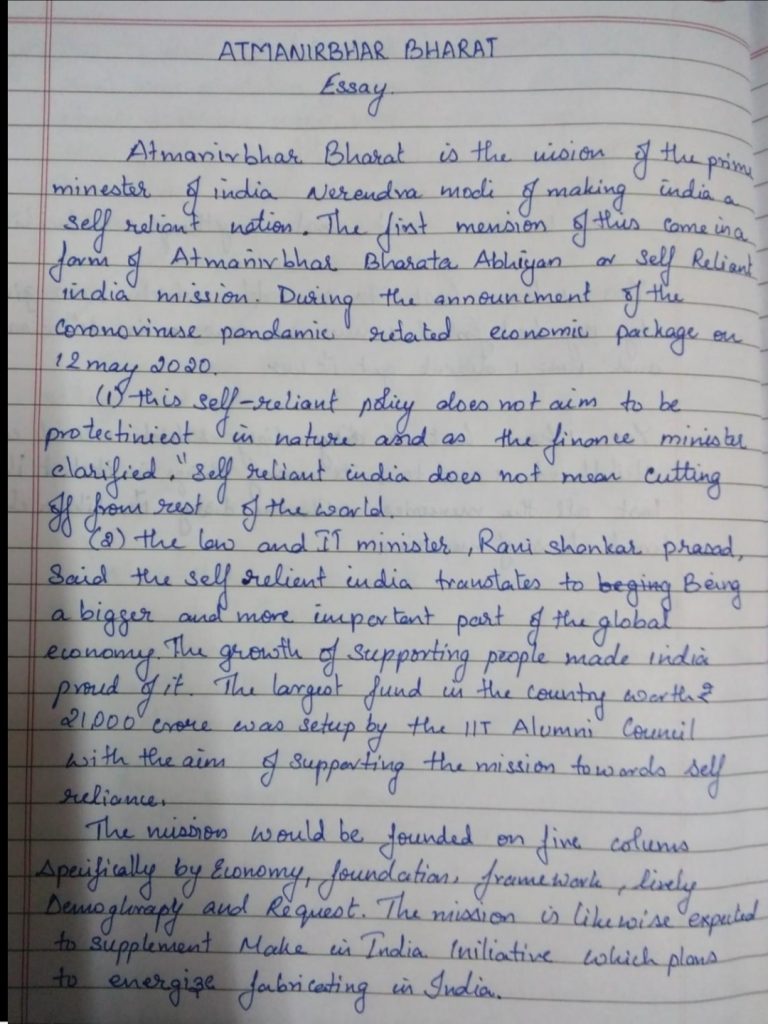 ATMANIRBHAR BHARAT
Essay.
Atmanirbhar Bharat is the vision of the prime
minester of india Nerendra modi of making india a
self reliant nation. The first mension of this come in a
form of Atmanirbhar Bharata Abhiyan or Self Reliant
india mission. During the announcment of the
Coronoviruse pandamic retated economic package on
12 may 2020.
(1) this self-reliant policy does not aim to be
protectiniest in nature and as the finance minister
clarified, "self reliant india does not mean cutting
off from rest of the world.
(2) the law and IT minister, Ravi shankar prasad,
Said the self relient india translates to beging Being
a bigger and more important part of the global
economy. The growth of supporting people made india
proud of it. The largest fund in the country worth ₹
21,000 crore was setup by the IIT Alumni Council
with the aim of supporting the mission towards self
reliance.
The mission would be founded on five colums
Specifically by Economy, foundation, framework, lively
Demoghrapy and Request. The mission is likewise expected
to supplement Make in India Iniliative which plans
to energize fabricating in India.